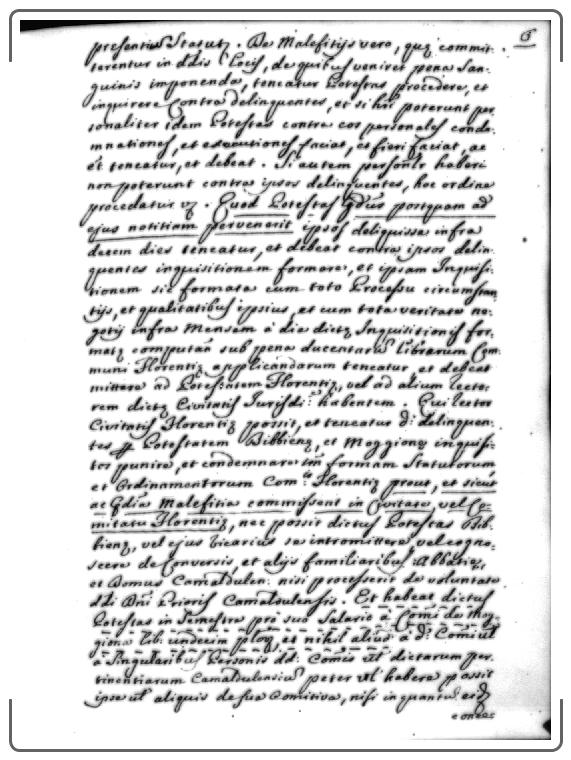 6
presentiũ Statutȝ. De Malefitijs vero, quę commit-
terentur in dt̃is Locis, de quibus veniret pena San-
guinis imponenda, teneatur Potestas procedere, et
inquirere Contra delinquentes, et si hr̃i poterunt per
sonaliter idem Potestas contra eos personales conde-
mnationes, et executiones faciat, et fieri faciat, ac
et teneatur, et debeat. Si autem personlr̃ haberi
non poterunt contra ipsos delinquentes, hoc ordine
procedatur vȝ. Quod Potestas q̃dictus postquam ad
ejus notitiam pervenerit ipsos deliquisse infra
decem dies teneatur, et debeat contra ipsos delin-
quentes inquisitionem formare, et ipsam Inquisi-
tionem sic formata cum toto Processu circumstan
tijs, et qualitatibus ipsius, et cum tota veritate ne-
gotij infra Mensem a die dictę Inquisitionis for-
matę computan̄ sub pena ducentarũ librarum Com-
muni Florentię applicandarum teneatur et debeat
mittere ad Potestatem Florentię, vel ad alium Recto-
rem dictę Civitatis Jurisdi: habentem. Qui Rector
Civitatis Florentię possit, et teneatur d: delinquen-
tes p Potestatem Bibbienę, et Moggionę inquisi-
tos punire, et condemnare tm̃ formam Statutorum
et Ordinamentorum Com: Florentię prout, et sicut
ac q̃dia Malefitia commissent in Civitate vel Co-
mitatu Florentię, nec possit dictus Potestas Bib-
bienę, vel ejus Vicarius se intromittere vel cogno-
scere de Conversis, et alijs familiaribus Abbatię,
et Domus Camaldulen: nisi processerit de voluntate
d̃di Dñi Prioris Camaldulensis. Et habeat dictus
Potestas in Semestre pro suo Salario a Comĩ de Mog
giona lib: undecim ploȝ et nihil aliud a d: Comĩ ul
a Singularibus Personis dd: Comes ul dictarum per-
tinentiarum Camaldulensiũ peter ul habere possit
ipse ul aliquis de sua Comitiva, nisi in quantũ erȝ
conces